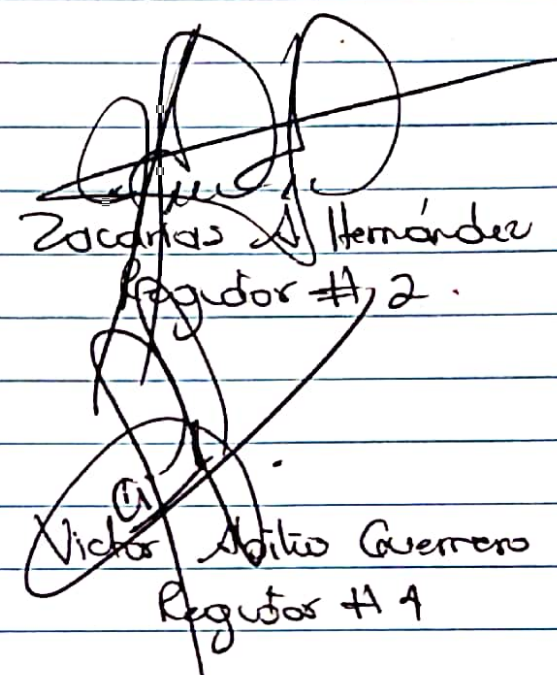 Zacarias A Hernández
Regidor # 2.
Victor Abilio Guerrero
Regidor # 4